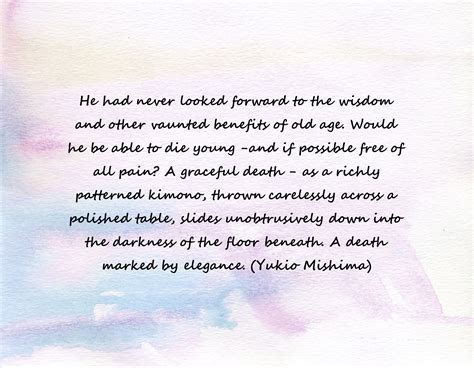 He had never looked forward to the wisdom
and other vaunted benefits of old age. Would
he be able to die young -and if possible free of
all pain? A graceful death - as a richly
patterned kimono, thrown carelessly across a
polished table, slides unobtrusively down into
the darkness of the floor beneath. A death
marked by elegance. (Yukio Mishima)